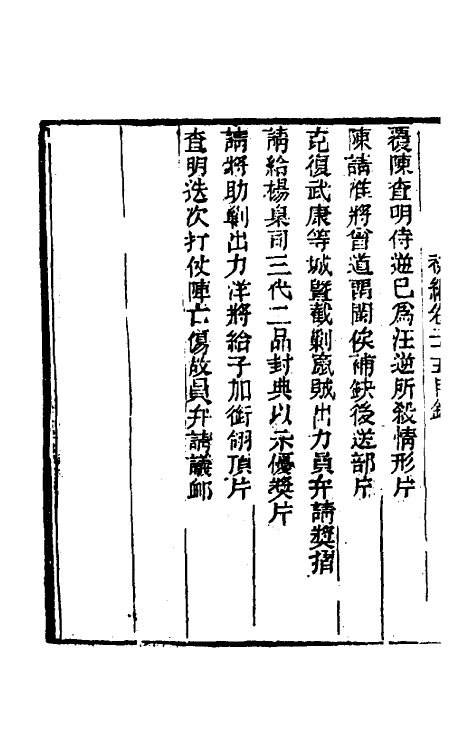 初編卷二十五目錄
覆陳查明侍逆已為汪逆所殺情形片
陳請准將曾道留閩俟補缺後送部片
克復武康等城暨截剿竄賊出力員弁請獎摺
請給楊臬司三代二品封典以示優獎片
請將助剿出力洋將給予加銜翎頂片
查明迭次打仗陣亡傷故員弁請議卹